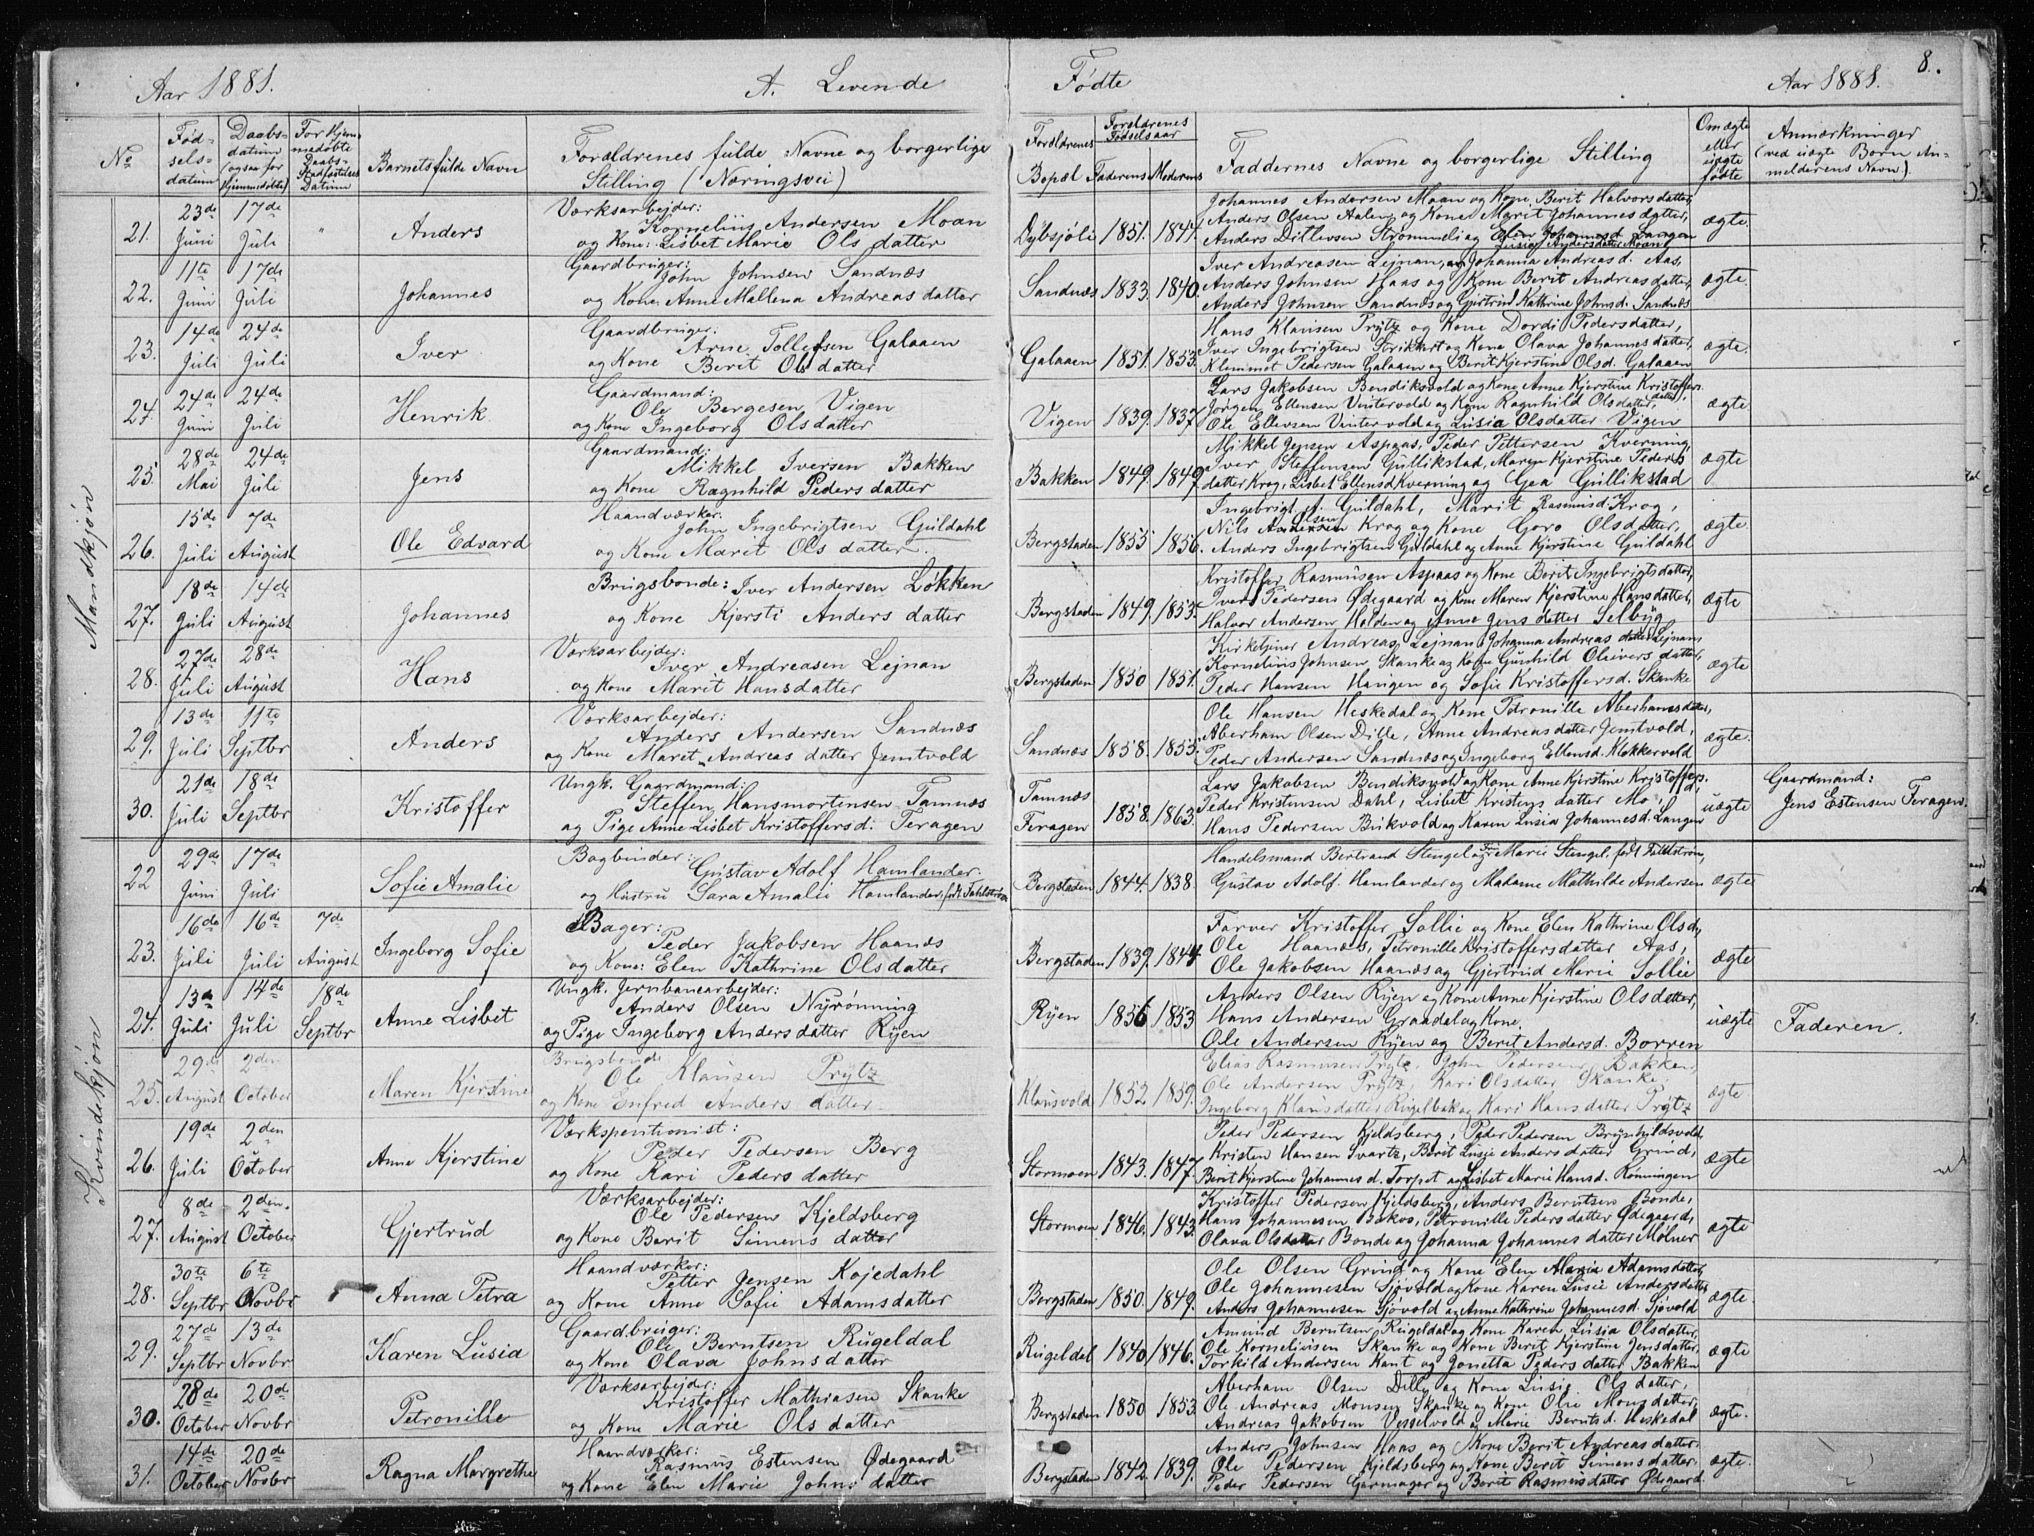 Aar 1881. A. Levende Fødte Aar 1881. 8.
No Fødselsdatum Daabsdatum (ogsaa for hjemmedøbte) For hjemmedøbte Daabs-Stadfæstelses Datum Barnets fulde Navn Forældrenes fulde Navne og borgerlige Stilling (Næringsvei) Forældrenes Bopæl Forældrenes Fødselsaar Faderens Moderens Faddernes Navne og borgerlige Stilling Om ægte eller uægte fødte Anmærkninger (ved uægte Børn Anmelderens Navn).
Mandkjøn
21. 23de Juni 17de Juli " Anders
Værksarbejder:
Kornelius Andersen Moan
og Kone: Lisbet Marie Olsdatter
Dybsjøli 1851. 1844.
Johannes Andersen Moan og Kone Berit Halvorsdatter,
Anders Olsen Aalen og Kone Marit Johannesdatter,
Anders Ditlevsen Strømmeli og Elen Johannesd. Langen
Lusia Andersdatter Moan
ægte.
22. 11te Juni 17de Juli Johannes
Gaardbruger:
John Johnsen Sandnæs
og Kone Anne Mallena Andreasdatter
Sandnæs 1833. 1840.
Iver Andreasen Lejnan, og Johanna Andreasd. Aas,
Anders Johnsen Haas og Kone Berit Andreasdatter,
Anders Johnsen Sandnæs og Gjertrud Kathrine Johnsd. Sandnæs
ægte.
23. 14de Juli 24de Juli Iver
Gaardbruger:
Arne Tollefsen Galaaen
og Kone Berit Olsdatter
Galaaen 1851. 1853.
Hans Klausen Prytz og Kone Dordi Pedersdatter,
Iver Ingebrigtsen og Kone Olava Johannesdatter,
Klemmet Pedersen Galaaen og Berit Kjerstine Olsd. Galaaen
ægte.
24. 24de Juni 24de Juli Henrik
Gaardmand:
Ole Bergesen Vigen
og Kone Ingeborg Olsdatter
Vigen 1839. 1837
Lars Jakobsen Bendiksvold og Kone Anne Kjerstine Kristoffersdatter,
Jørgen Ellensen Vintervold og Kone Ragnhild Olsdatter,
Ole Ellevsen Vintervold og Lusia Olsdatter Vigen
ægte
25. 28de Mai 24de Juli Jens
Gaardmand:
Mikkel Iversen Bakken
og Kone Ragnhild Pedersdatter
Bakken 1849. 1849
Mikkel Jensen Aspaas, Peder Pettersen Kverning,
Iver Steffensen Gullikstad, Maren Kjerstine Peders
datter Krog, Lisbet Ellensd Kverning og Gea Gullikstad
ægte
26. 15de Juli 7de August Ole Edvard
Haandværker:
John Ingebrigtsen Guldahl
og Kone Marit Olsdatter.
Bergstaden 1855. 1856.
Ingebrigt J. Guldahl, Marit Rasmusd. Krog,
Nils Olsen Krog og Kone Goro Olsdatter,
Anders Ingebrigtsen Guldahl og Anne Kjerstine Guldahl
ægte.
27. 18de Juli 14de August Johannes
Brugsbonde: Iver Andersen Løkken
og Kone Kjersti Andersdatter
Bergstaden 1849. 1853.
Kristoffer Rasmusen Aspaas og Kone Berit Ingebrigtsdatter,
Iver Pedersen Ødegaard og Kone Maren Kjerstine Hansdatter,
Halvor Andersen Holden og Anne Jensdatter Selbyg
ægte
28. 27de Juli 28de August Hans
Værksarbejder:
Iver Andreasen Lejnan
og Kone Marit Hansdatter
Bergstaden 1850 1851.
Kirketjener Andreas Lejnan, Johanna Andreasdatter Lejnan,
Kornelius Johnsen Skanke og Kone Gunhild Oliversdatter,
Peder Hansen Haugen og Sofie Kristoffersd. Skanke
ægte
29. 13de Juli 11te Septbr Anders
Værksarbejder:
Anders Andersen Sandnæs
og Kone Maret Andreasdatter Jemtvold
Sandnæs 1858. 1855.
Ole Hansen Heskedal og Kone Petronille Aberhamsdatter,
Aberham Olsen Dille, Anne Andreasdatter Jemtvold,
Peder Andersen Sandnæs og Ingeborg Ellensd. Klokkervold
ægte.
30. 21de Juli 18de Septbr Kristoffer
Ungk. Gaardmand:
Steffen Hansmortensen Tamnæs
og Pige Anne Lisbet Kristoffersd. Feragen
Tamnæs Feragen 1858. 1863.
Lars Jakobsen Bendiksvold og Kone Anne Kjerstine Kristoffers.d,
Peder Kristensen Dahl, Lisbet Kristensdatter Mo,
Hans Pedersen Bukvold og Karen Lusia Johannesd. Langen
uægte
Gaardmand:
Jens Estensen Feragen.
Kvindekjøn
22 29de Juni 17de Juli Sofie Amalie
Bogbinder:
Gustav Adolf Hamlander.
og Hustru Sara Amalie Hamlander, født Fahlstrøm
Bergstaden 1844. 1838.
Handelsmand Bertrand Stengel og Fru Marie Stengel, født Fahlstrøm,
Gustav Adolf Hamlander og Madame Mathilde Andersen
ægte
23. 16de Juli 16de Juli 7de August Ingeborg Sofie
Bager:
Peder Jakobsen Haanæs
og Kone: Elen Kathrine Olsdatter
Bergstaden 1839. 1844
Farver Kristoffer Sollie og Kone Elen Kathrine Olsd.,
Ole Haanæs, Petronille Kristoffersdatter Aas,
Ole Jakobsen Haanæs og Gjertrud Marie Sollie
ægte
24. 13de Juli 14de Juli 18de Septbr Anne Lisbet
Ungk. Jernbanearbejder:
Anders Olsen Nyrønning
og Pige Ingeborg Andersdatter Ryen
Ryen 1856 1853
Anders Olsen Ryen og Kone Anne Kjerstine Olsdatter,
Hans Andersen Graadal og Kone.
Ole Andersen Ryen og Berit Andersd. Borren
uægte
Faderen.
25. 29de August 2den October Maren Kjerstine
Brugsbonde
Ole Klausen Prytz
og Kone Enfred Andersdatter.
Klausvold 1852 1859.
Elias Rasmusen Prytz, John Pedersen Bakken,
Ole Andersen Prytz, Kari Olsdatter Skanke,
Ingeborg Klausdatter Rugelbak og Kari Hansdatter Prytz
ægte
26. 19de Juli 2den October Anne Kjerstine
Værkspentionist:
Peder Pedersen Berg
og Kone Kari Pedersdatter
Stormoen 1843. 1847.
Peder Pedersen Kjeldsberg, Peder Pedersen Brynhildsvold,
Kristen Hansen Svartz, Berit Lusie Andersdatter Grind,
Berit Kjerstine Johannesd. Torpet og Lisbet Marie Hansd. Rønningen
ægte
27. 8de August 2den October Gjertrud
Værksarbejder:
Ole Pedersen Kjeldsberg
og Kone Berit Simensdatter
Stormoen 1846. 1843.
Kristoffer Pedersen Kjeldsberg, Anders Berntsen Bonde,
Hans Johannesen Bakos, Petronille Pedersdatter Ødegaard,
Olava Olsdatter Bonde og Johanna Johannesdatter Mølner
ægte
28. 30te Septbr 6te Novbr Anna Petra
Haandværker:
Petter Jensen Kojedahl
og Kone Anne Sofie Adamsdatter
Bergstaden 1850. 1849.
Ole Olsen Grind og Kone Elen Maria Adamsdatter,
Ole Johannesen Sjøvold og Kone Karen Lusie Andersdatter,
Anders Johannesen Sjøvold og Anne Kathrine Johannesd. Sjøvold
ægte.
29. 27de Septbr 13de Novbr Karen Lusia
Gaardbruger:
Ole Berntsen Rugeldal
og Kone Olava Johnsdatter
Rugeldal 1840 1846.
Amund Berntsen Rugeldal og Kone Karen Lusia Olsdatter,
Ole Korneliusen Skanke og Kone Berit Kjerstine Jensdatter,
Torkild Andersen Kant og Jonetta Pedersdatter Bakken
ægte
30. 28de October 20de Novbr Petronille
Værksarbejder:
Kristoffer Mathiasen Skanke
og Kone Marie Olsdatter
Bergstaden 1850 1853.
Aberham Olsen Dilly og Kone Lusie Olsdatter,
Ole Andreas Monsen Skanke og Kone Olie Monsdatter,
Andreas Jakobsen Vesselvold og Marie Berntsd. Heskedal
ægte.
31. 14de October 20de Novbr Ragna Margrethe
Haandværker:
Rasmus Estensen Ødegaard
og Kone Elen Marie Johnsdatter
Bergstaden 1842 1839.
Anders Johnsen Haas og Kone Berit Andreasdatter.
Ole Pedersen Kjeldsberg og Kone Berit Simensdatter.
Peder Pedersen Garmager og Berit Rasmusdatter Ødegaard
ægte.